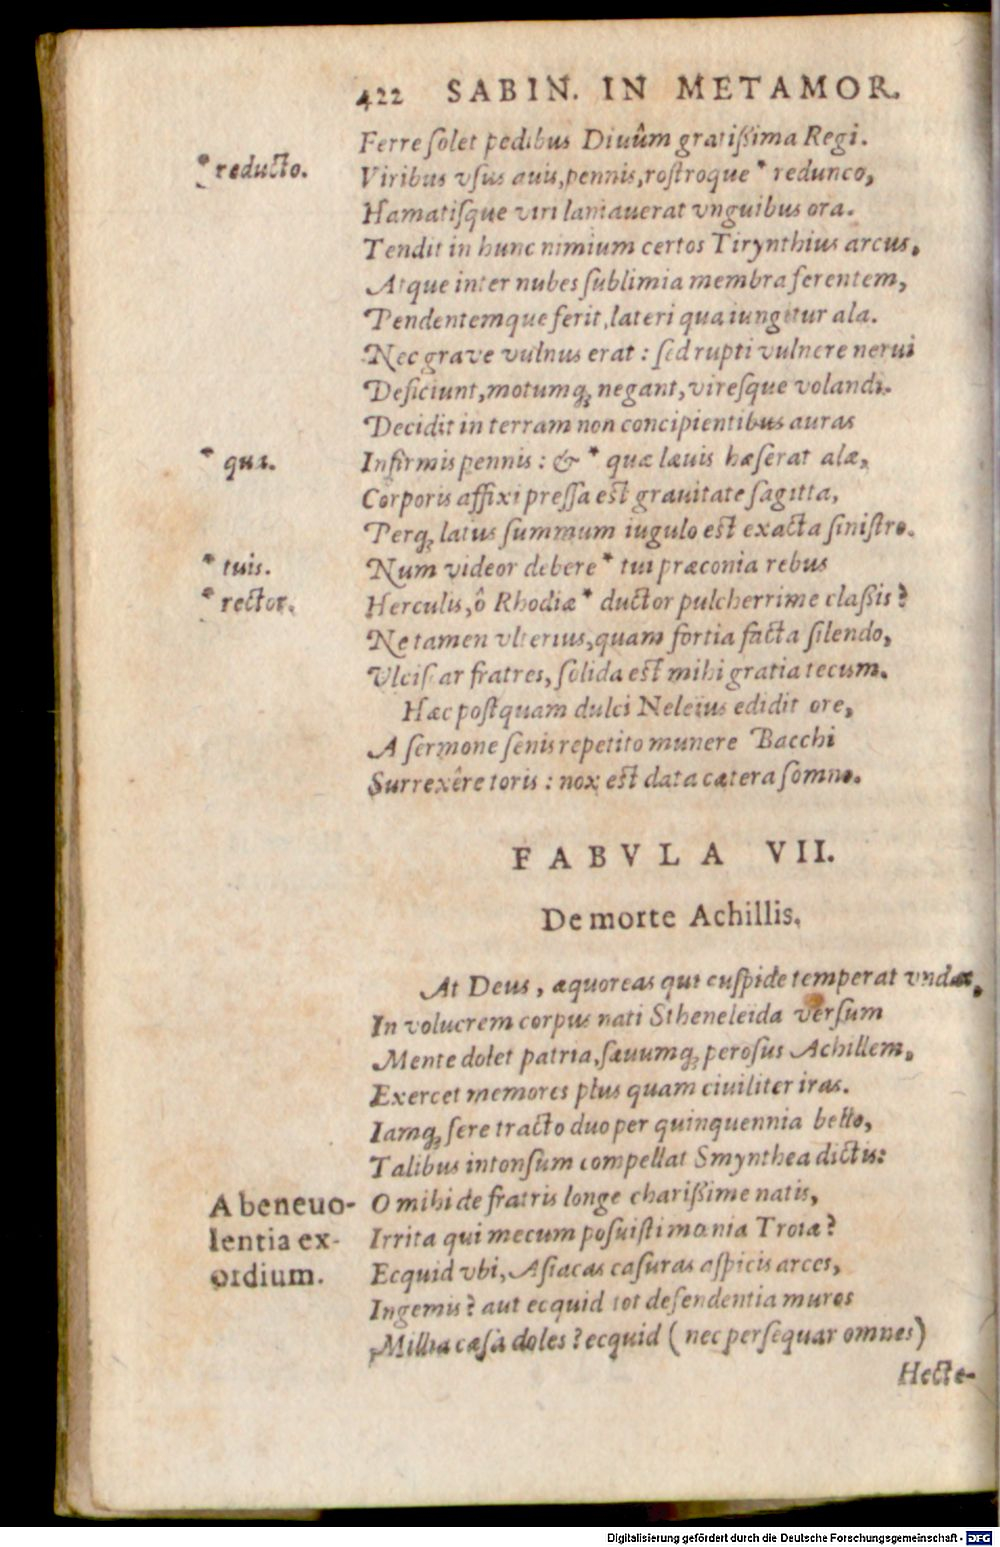 422 SABIN. IN METAMOR.
Ferre solet pedibus Diuûm gratißima Regi.
* reducto.
Viribus vsus auis, pennis, rostroque * redunco,
Hamatisque viri laniauerat vnguibus ora.
Tendit in hunc nimium certos Tirynthius arcus,
Atque inter nubes sublimia membra ferentem,
Pendentemque ferit, lateri qua iungitur ala.
Nec grave vulnus erat: sed rupti vulnere nerui
Deficiunt, motumq; negant, viresque volandi.
Decidit in terram non concipientibus auras
* qua.
Infirmis pennis: & * quæ læuis hæserat alæ,
Corporis affixi pressa est grauitate sagitta,
Perq; latus summum iugulo est exacta sinistro.
* tuis.
Num videor debere * tui præconia rebus
* rector.
Herculis, ô Rhodiæ * ductor pulcherrime claßis?
Ne tamen vlterius, quam fortia facta silendo,
Vlciscar fratres, solida est mihi gratia tecum.
Hæc postquam dulci Neleïus edidit ore,
A sermone senis repetito munere Bacchi
Surrexêre toris: nox est data cætera somno.
FABVLA VII.
De morte Achillis.
At Deus, æquoreas qui cuspide temperat vndas,
In volucrem corpus nati Stheneleïda versum
Mente dolet patria, sæuumq; perosus Achillem,
Exercet memores plus quam ciuiliter iras.
Iamq; fere tracto duo per quinquennia bello,
Talibus intonsum compellat Smynthea dictis:
A beneuo-
lentia ex-
ordium.
O mihi de fratris longe charißime natis,
Irrita qui mecum posuisti mœnia Troiæ?
Ecquid vbi, Asiacas casuras aspicis arces,
Ingemis? aut ecquid tot defendentia muros
Millia cæsa doles? ecquid (nec persequar omnes)
Hecte-
Digitalisierung gefördert durch die Deutsche Forschungsgemeinschaft - DFG